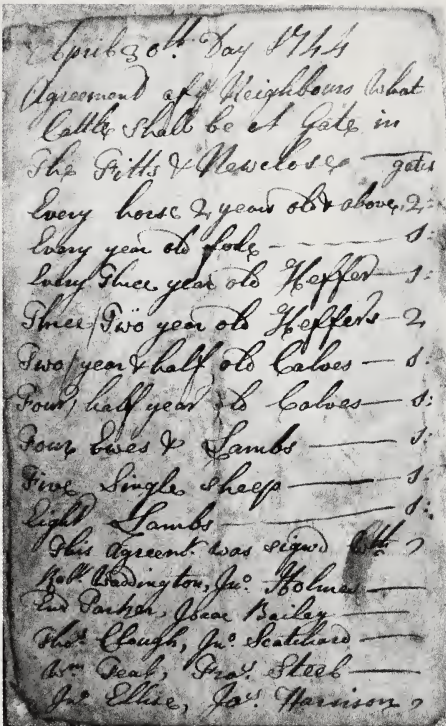 April 30th. Day 1744
Agreement of Neighbours What
Cattle Shall be A Gate in
The Fitts & Newclose — gates
Every horse 2 years old & above, 2
Every year old fole — 1:
Every Three year old Heffer — 1:
Three Two year old Heffers — 2
Two year & half old Calves — 1:
Four half year old Calves — 1:
Four Ewes & Lambs — 1:
Five Single Sheep — 1:
Eight Lambs — 1:
This Agreemt. was signd
Robt. Waddington, Jno. Holmes —
Parker, Isaac Bailey —
Thos. Clough, Jno. Scatchard —
Wm Teal, Fras. Steel —
Jno. Ellise, Jas. Harrison